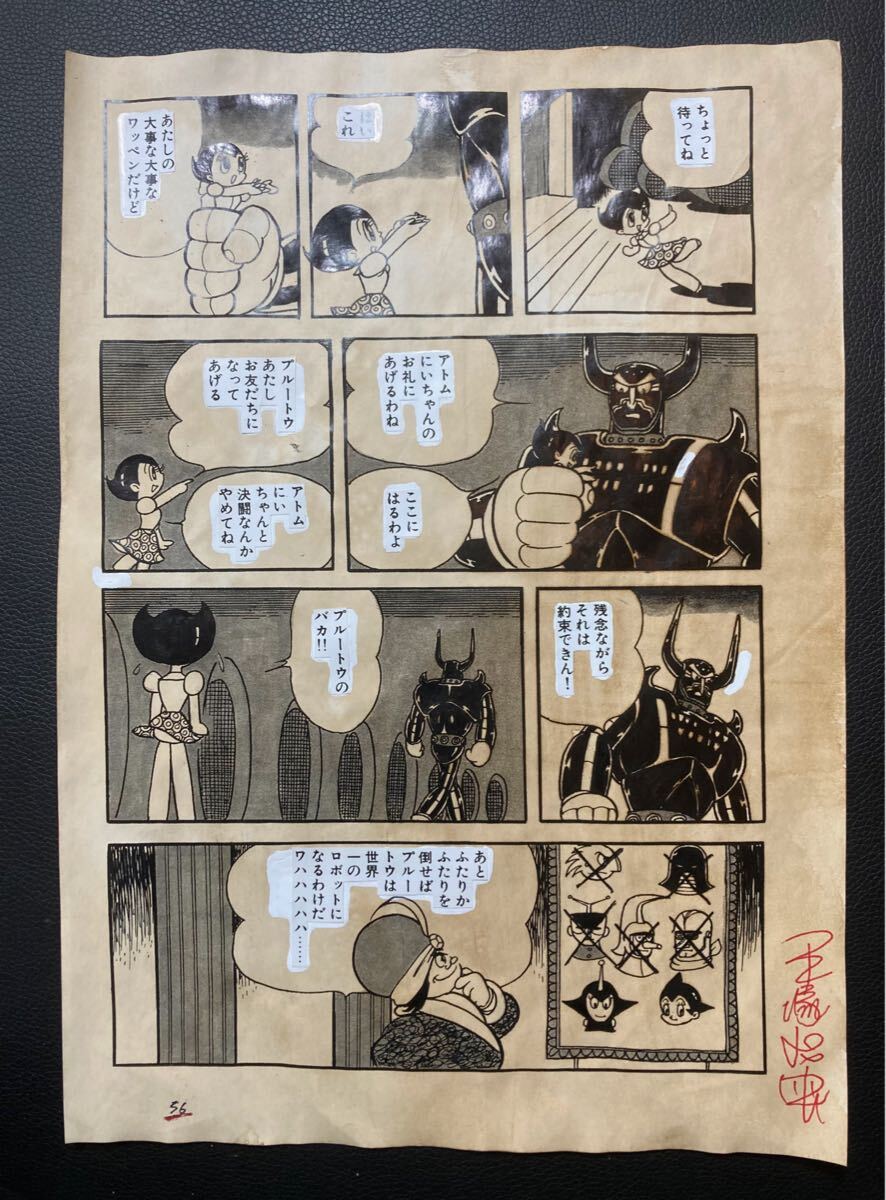 ちょっと
待ってね
はい
これ
あたしの
大事な大事な
ワッペンだけど
アトム
にいちゃんの
お礼に
あげるわね
ここに
はるわよ
プルートウ
あたし
お友だちに
なって
あげる
アトム
にい
ちゃんと
決闘なんか
やめてね
残念ながら
それは
約束できん!
プルートウの
バカ!!
あと
ふたりか
ふたりを
倒せば
プルー
トウは
世界
一の
ロボットに
なるわけだ
ワハハハハハ……
手塚治虫
56